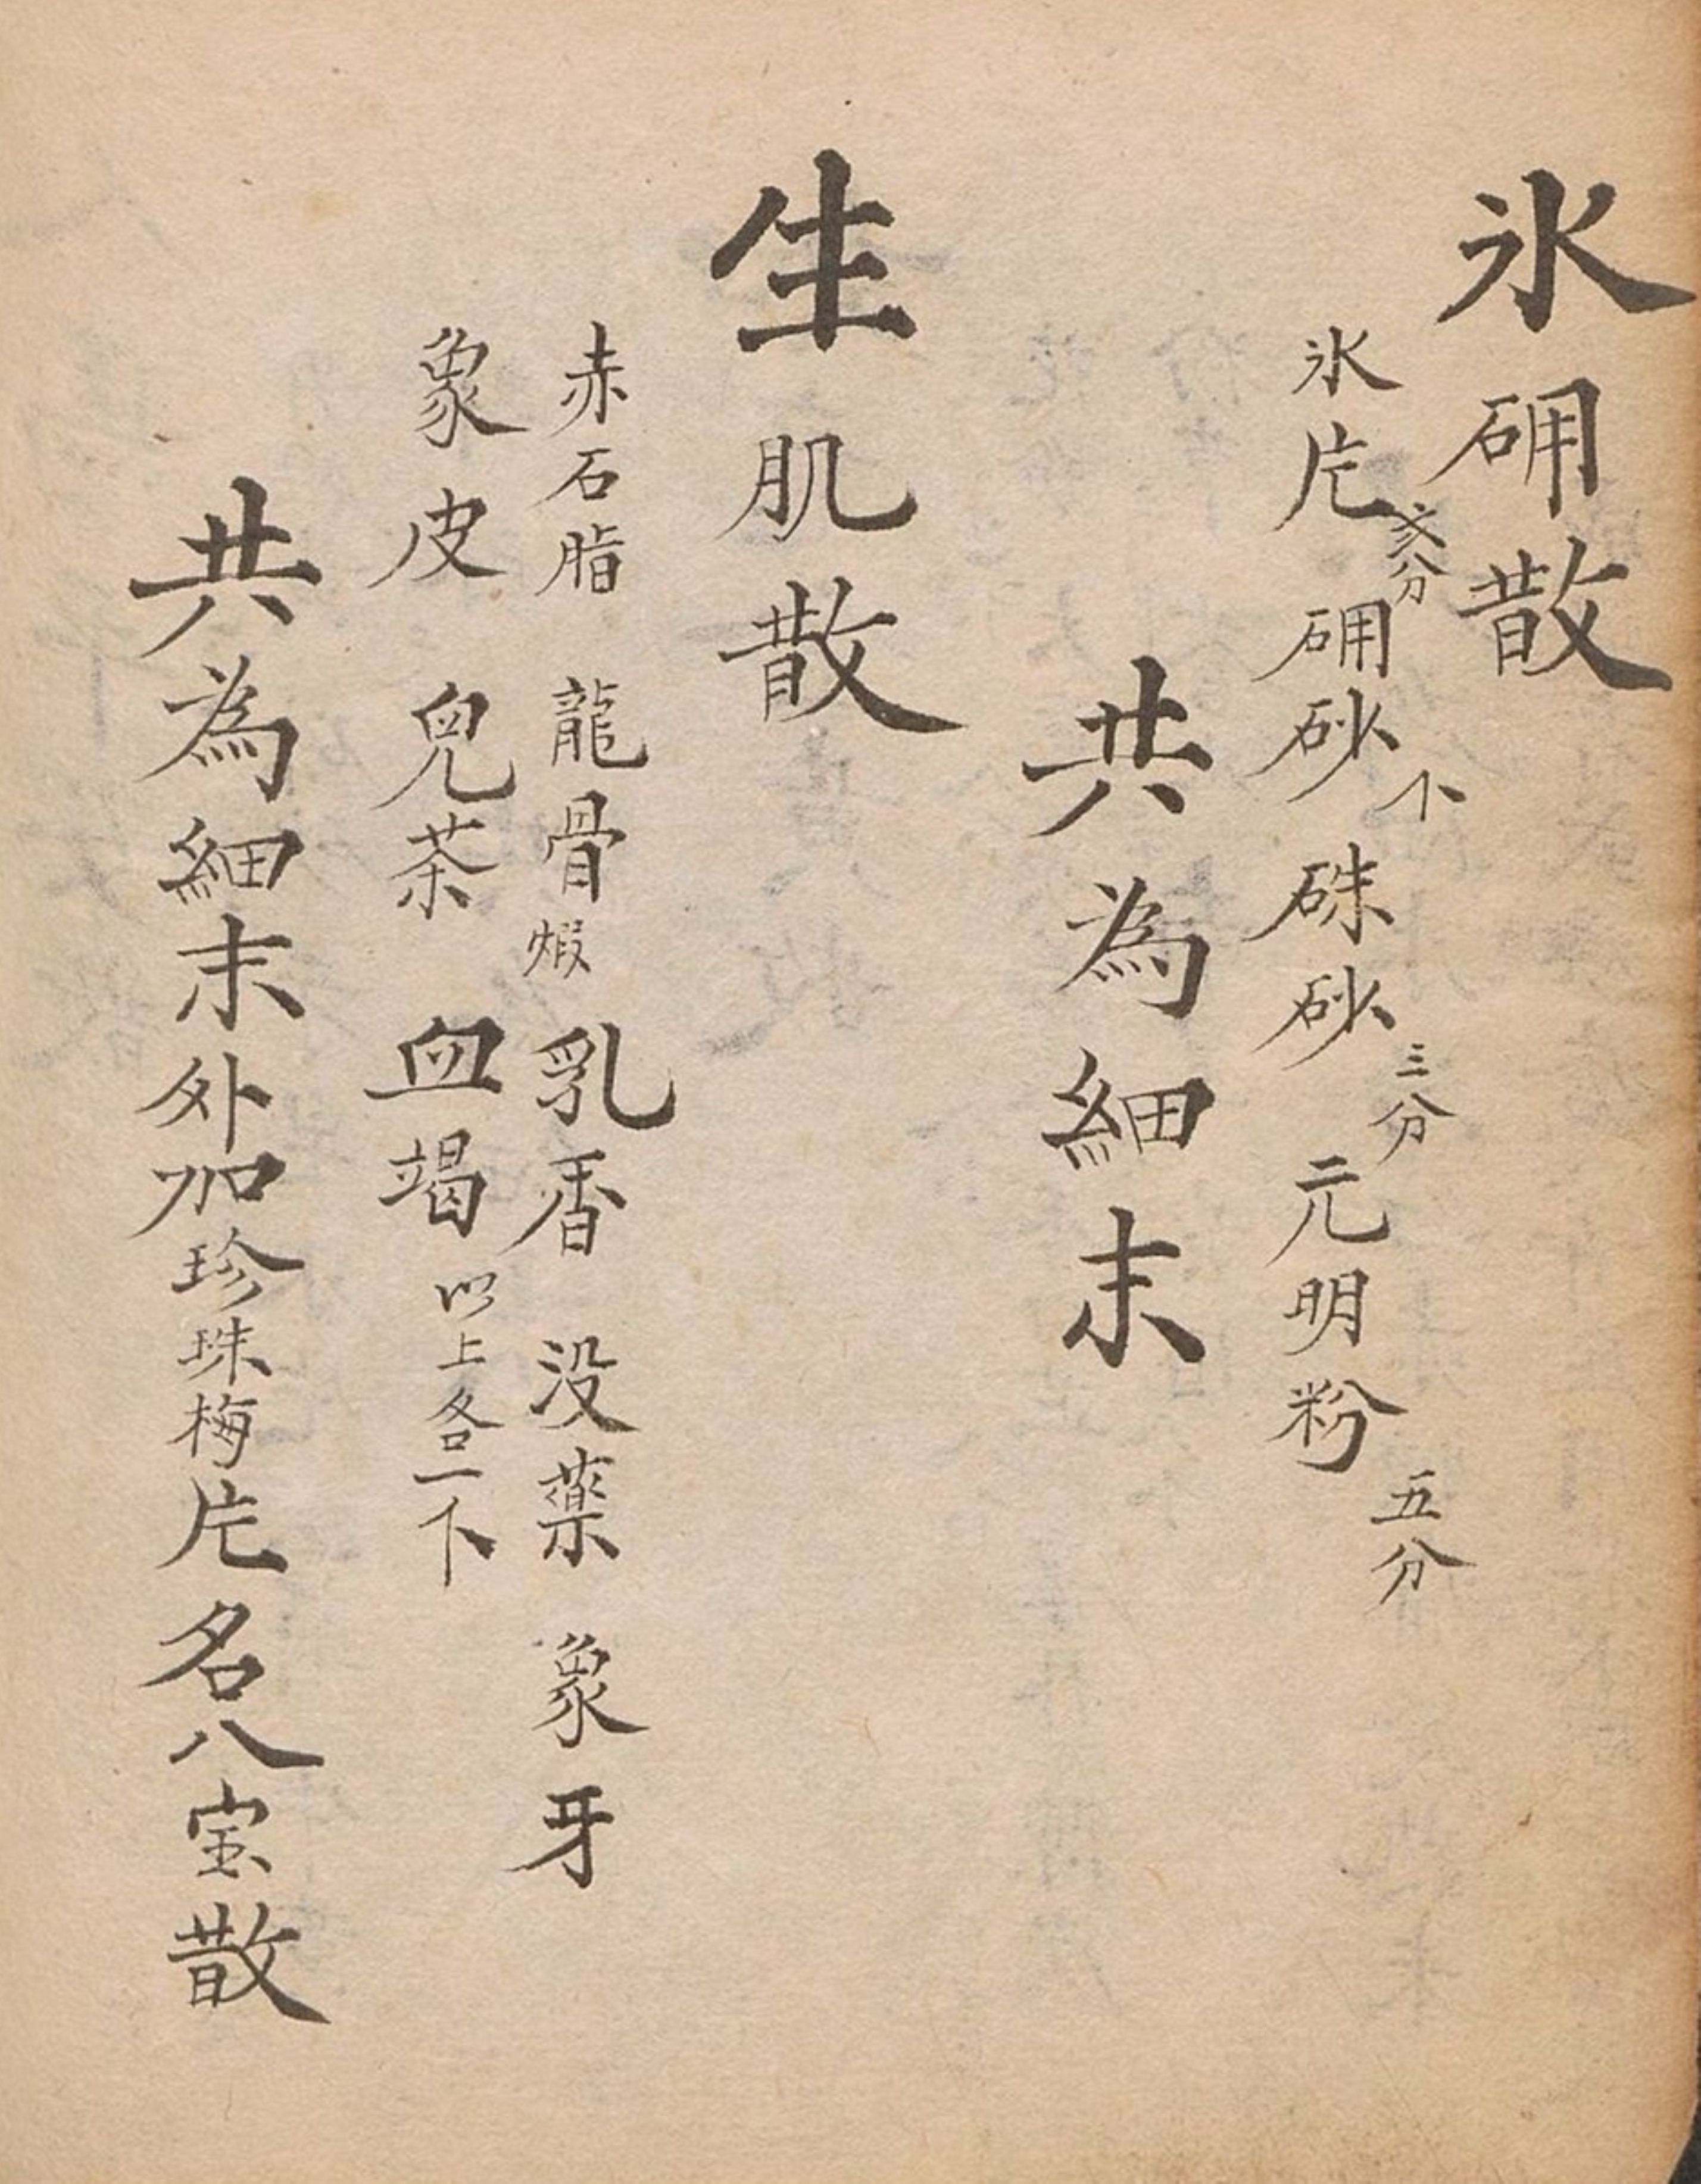 氷硼散
氷片弍分硼砂个硃砂三分元明粉五分
共為細末
生肌散
赤石脂龍骨煆乳香没薬象牙
象皮兒茶血竭以上各一下
共為細末外加珍珠梅片名八宝散